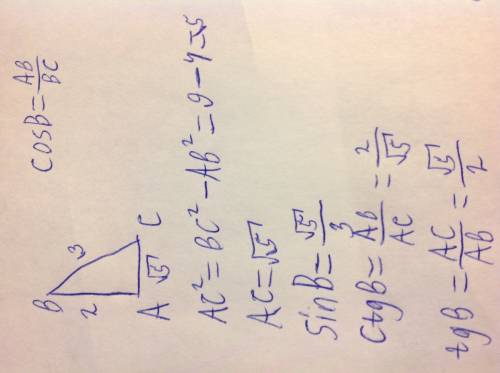 cosB = AB/BC
B
3
2
C
A
√5
AC² = BC² - AB² = 9 - 4 = 5
AC = √5
sinB = √5/3
ctgB = AB/AC = 2/√5
tgB = AC/AB = √5/2